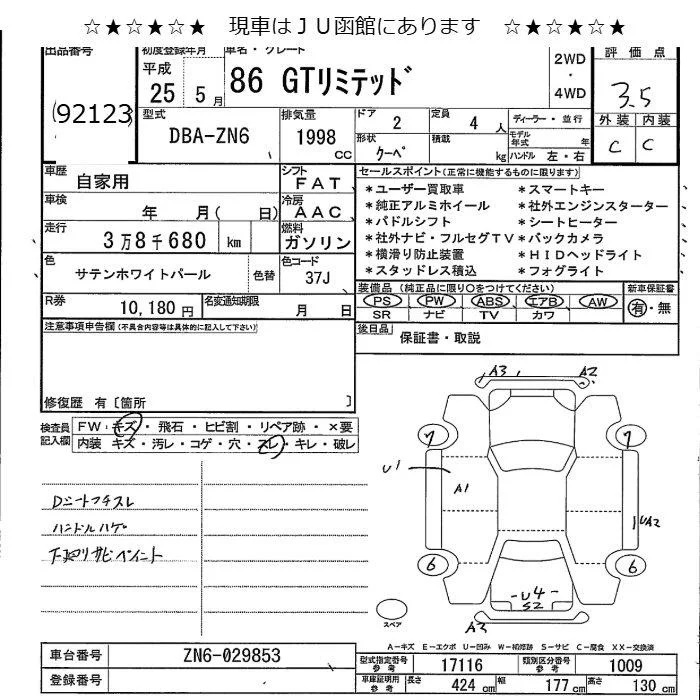 ☆★☆★☆★ 現車はＪＵ函館にあります ☆★☆★☆★
出品番号 初度登録年月 車名・グレード 評価点
(92123) 平成 25 5月 86 GTリミテッド 2WD・4WD 3.5
型式 排気量 ドア 定員 ディーラー・並行 外装 内装
DBA-ZN6 1998 cc 2 4人 モデル年式 年 C C
形状 クーペ 積載 kg ハンドル 左・右
車歴 自家用 シフト FAT セールスポイント(正常に機能するものに限ります)
車検 年 月( 日) 冷房 AAC
走行 3万8千680 km 燃料 ガソリン
*ユーザー買取車 *スマートキー
*純正アルミホイール *社外エンジンスターター
*パドルシフト *シートヒーター
*社外ナビ・フルセグTV *バックカメラ
*横滑り防止装置 *HIDヘッドライト
*スタッドレス積込 *フォグライト
色 サテンホワイトパール 色替 色コード 37J
R券 10,180円 名変通知期限 月 日
装備品 (純正品に限り○をつけてください) 新車保証書
PS PW ABS エアB AW 有・無
SR ナビ TV カワ
注意事項申告欄(不具合内容等は具体的に記入して下さい)
後日品 保証書・取説
修復歴 有〔箇所 〕
検査員記入欄 FW:キズ・飛石・ヒビ割・リペア跡・×要
内装 キズ・汚レ・コゲ・穴・スレ・キレ・破レ
A3 A2
7 7
U1 A1
UA2
6 6
U4
S2
A3
スペア
Dシートフチスレ
ハンドルハゲ
下廻リサビペイント
A-キズ E-エクボ U-凹み W-補修跡 S-サビ C-腐食 XX-交換済
車台番号 ZN6-029853
型式指定番号 参考 17116 類別区分番号 参考 1009
登録番号
車庫証明用 参考 長さ 424 cm 幅 177 cm 高さ 130 cm